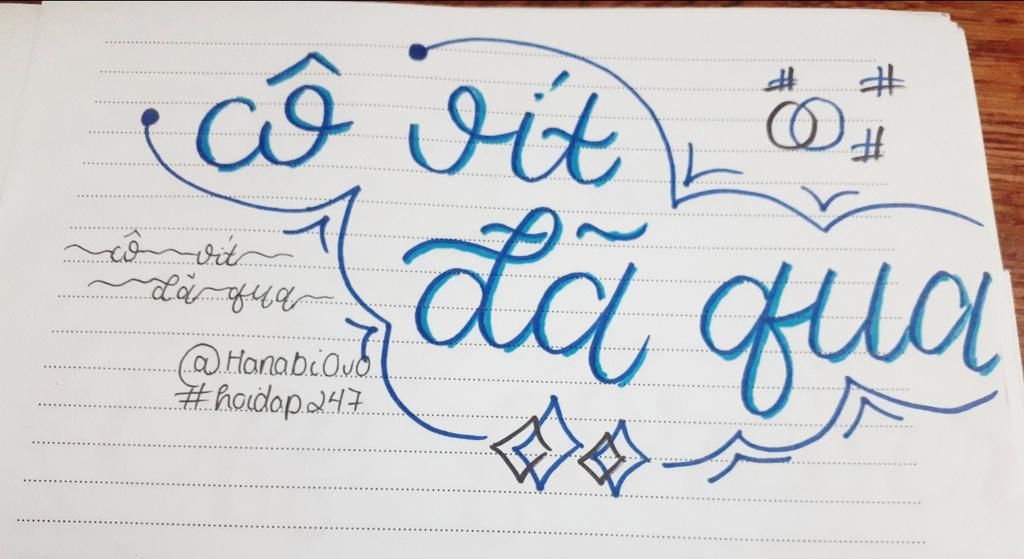 cô vít
đã qua
cô vít
đã qua
@HanabiOvO
#hoidap247